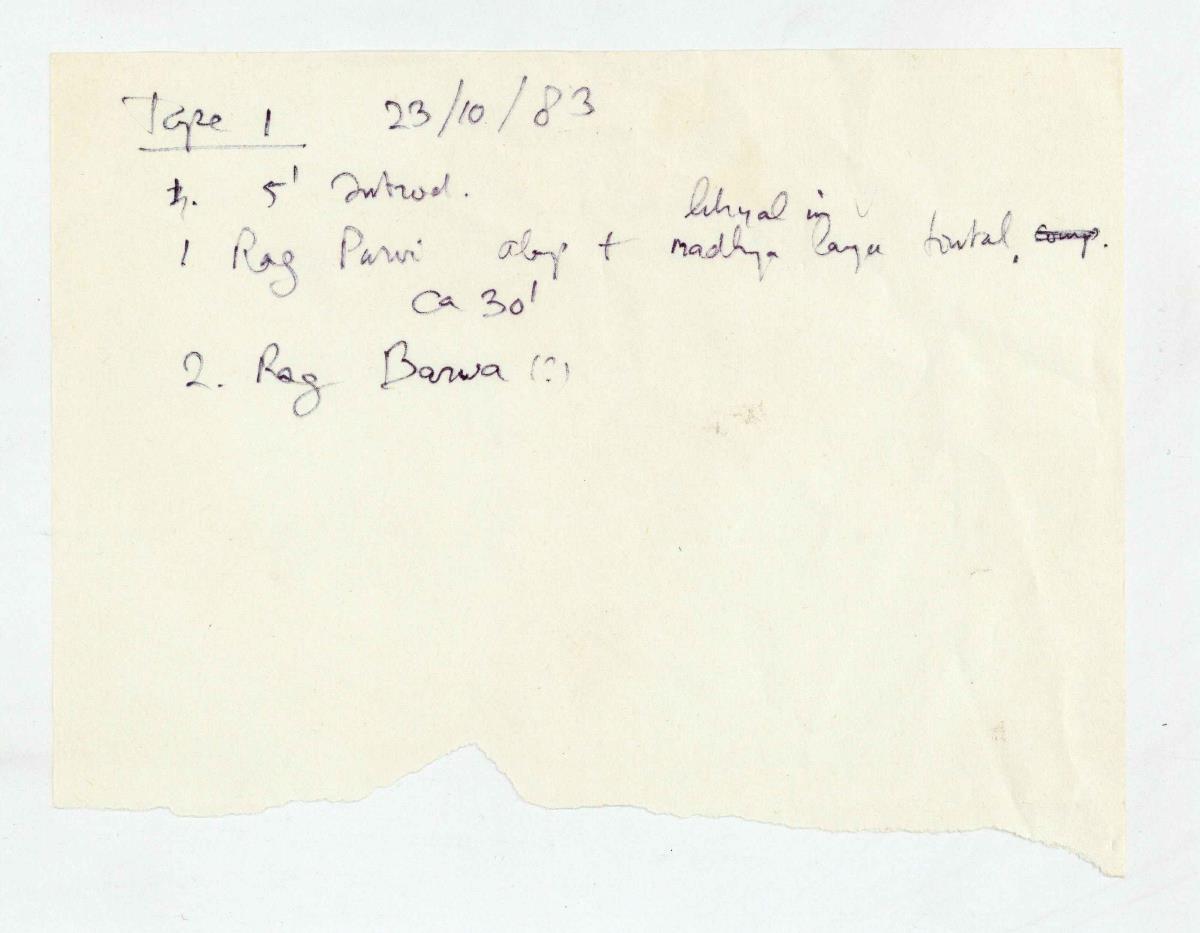 Tape 1 23/10/83
1. 5' Introd.
khyal in
1 Rag Purvi alap + madhya laya tintal, comp.
Ca 30'
2. Rag Barwa (?)